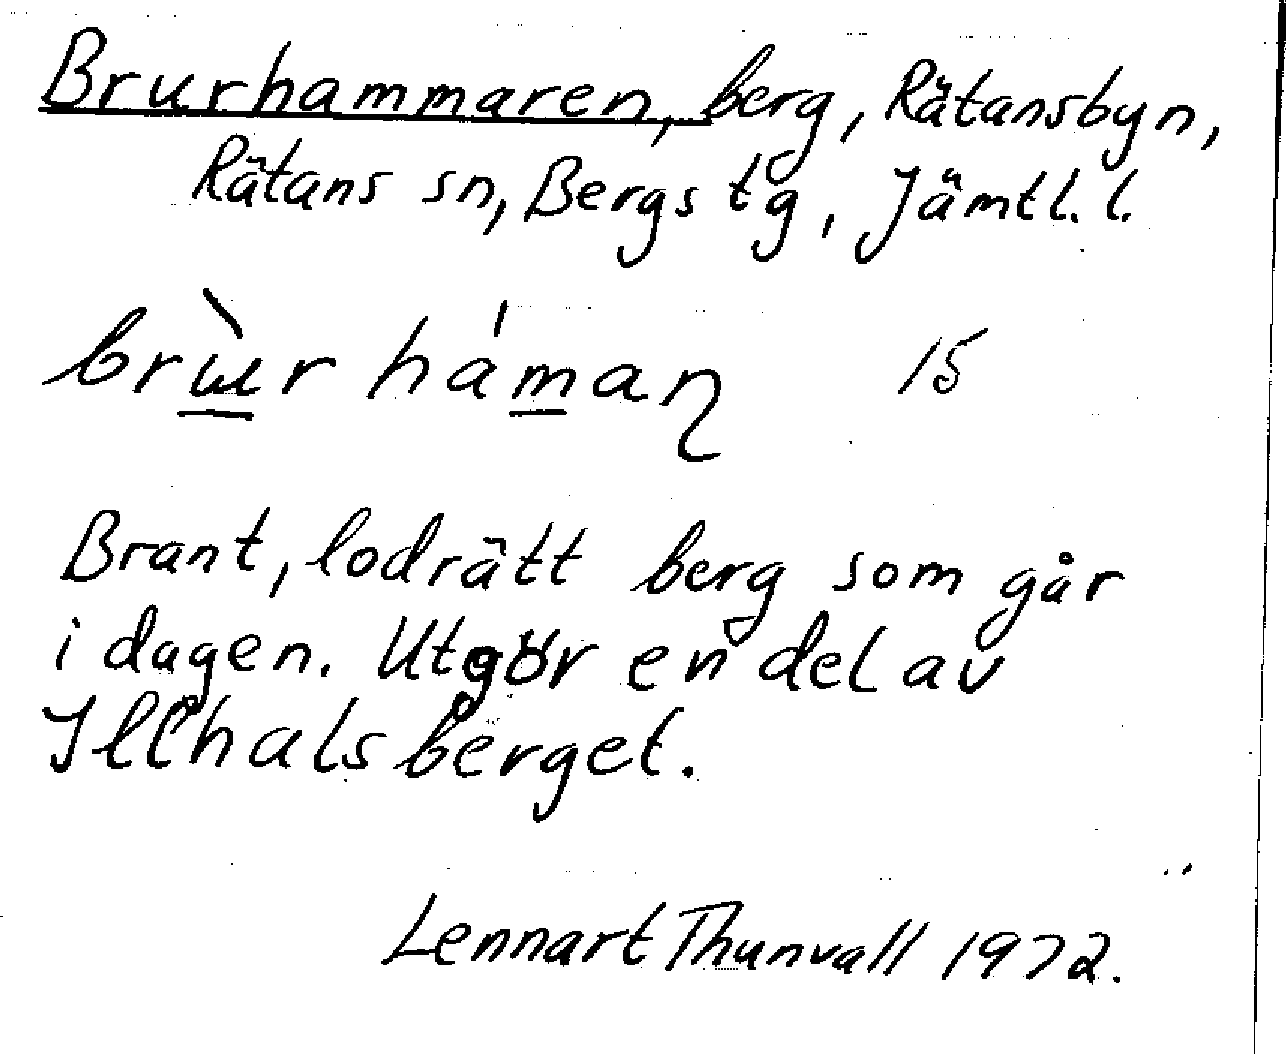 Brurhammaren, berg, Rätansbyn,
Rätans sn, Bergs tg, Jämtl. l.
brɯ̀r háman̡ 15
Brant, lodrätt berg som går
i dagen. Utgör en del av
Illhalsberget.
Lennart Thunvall 1972.